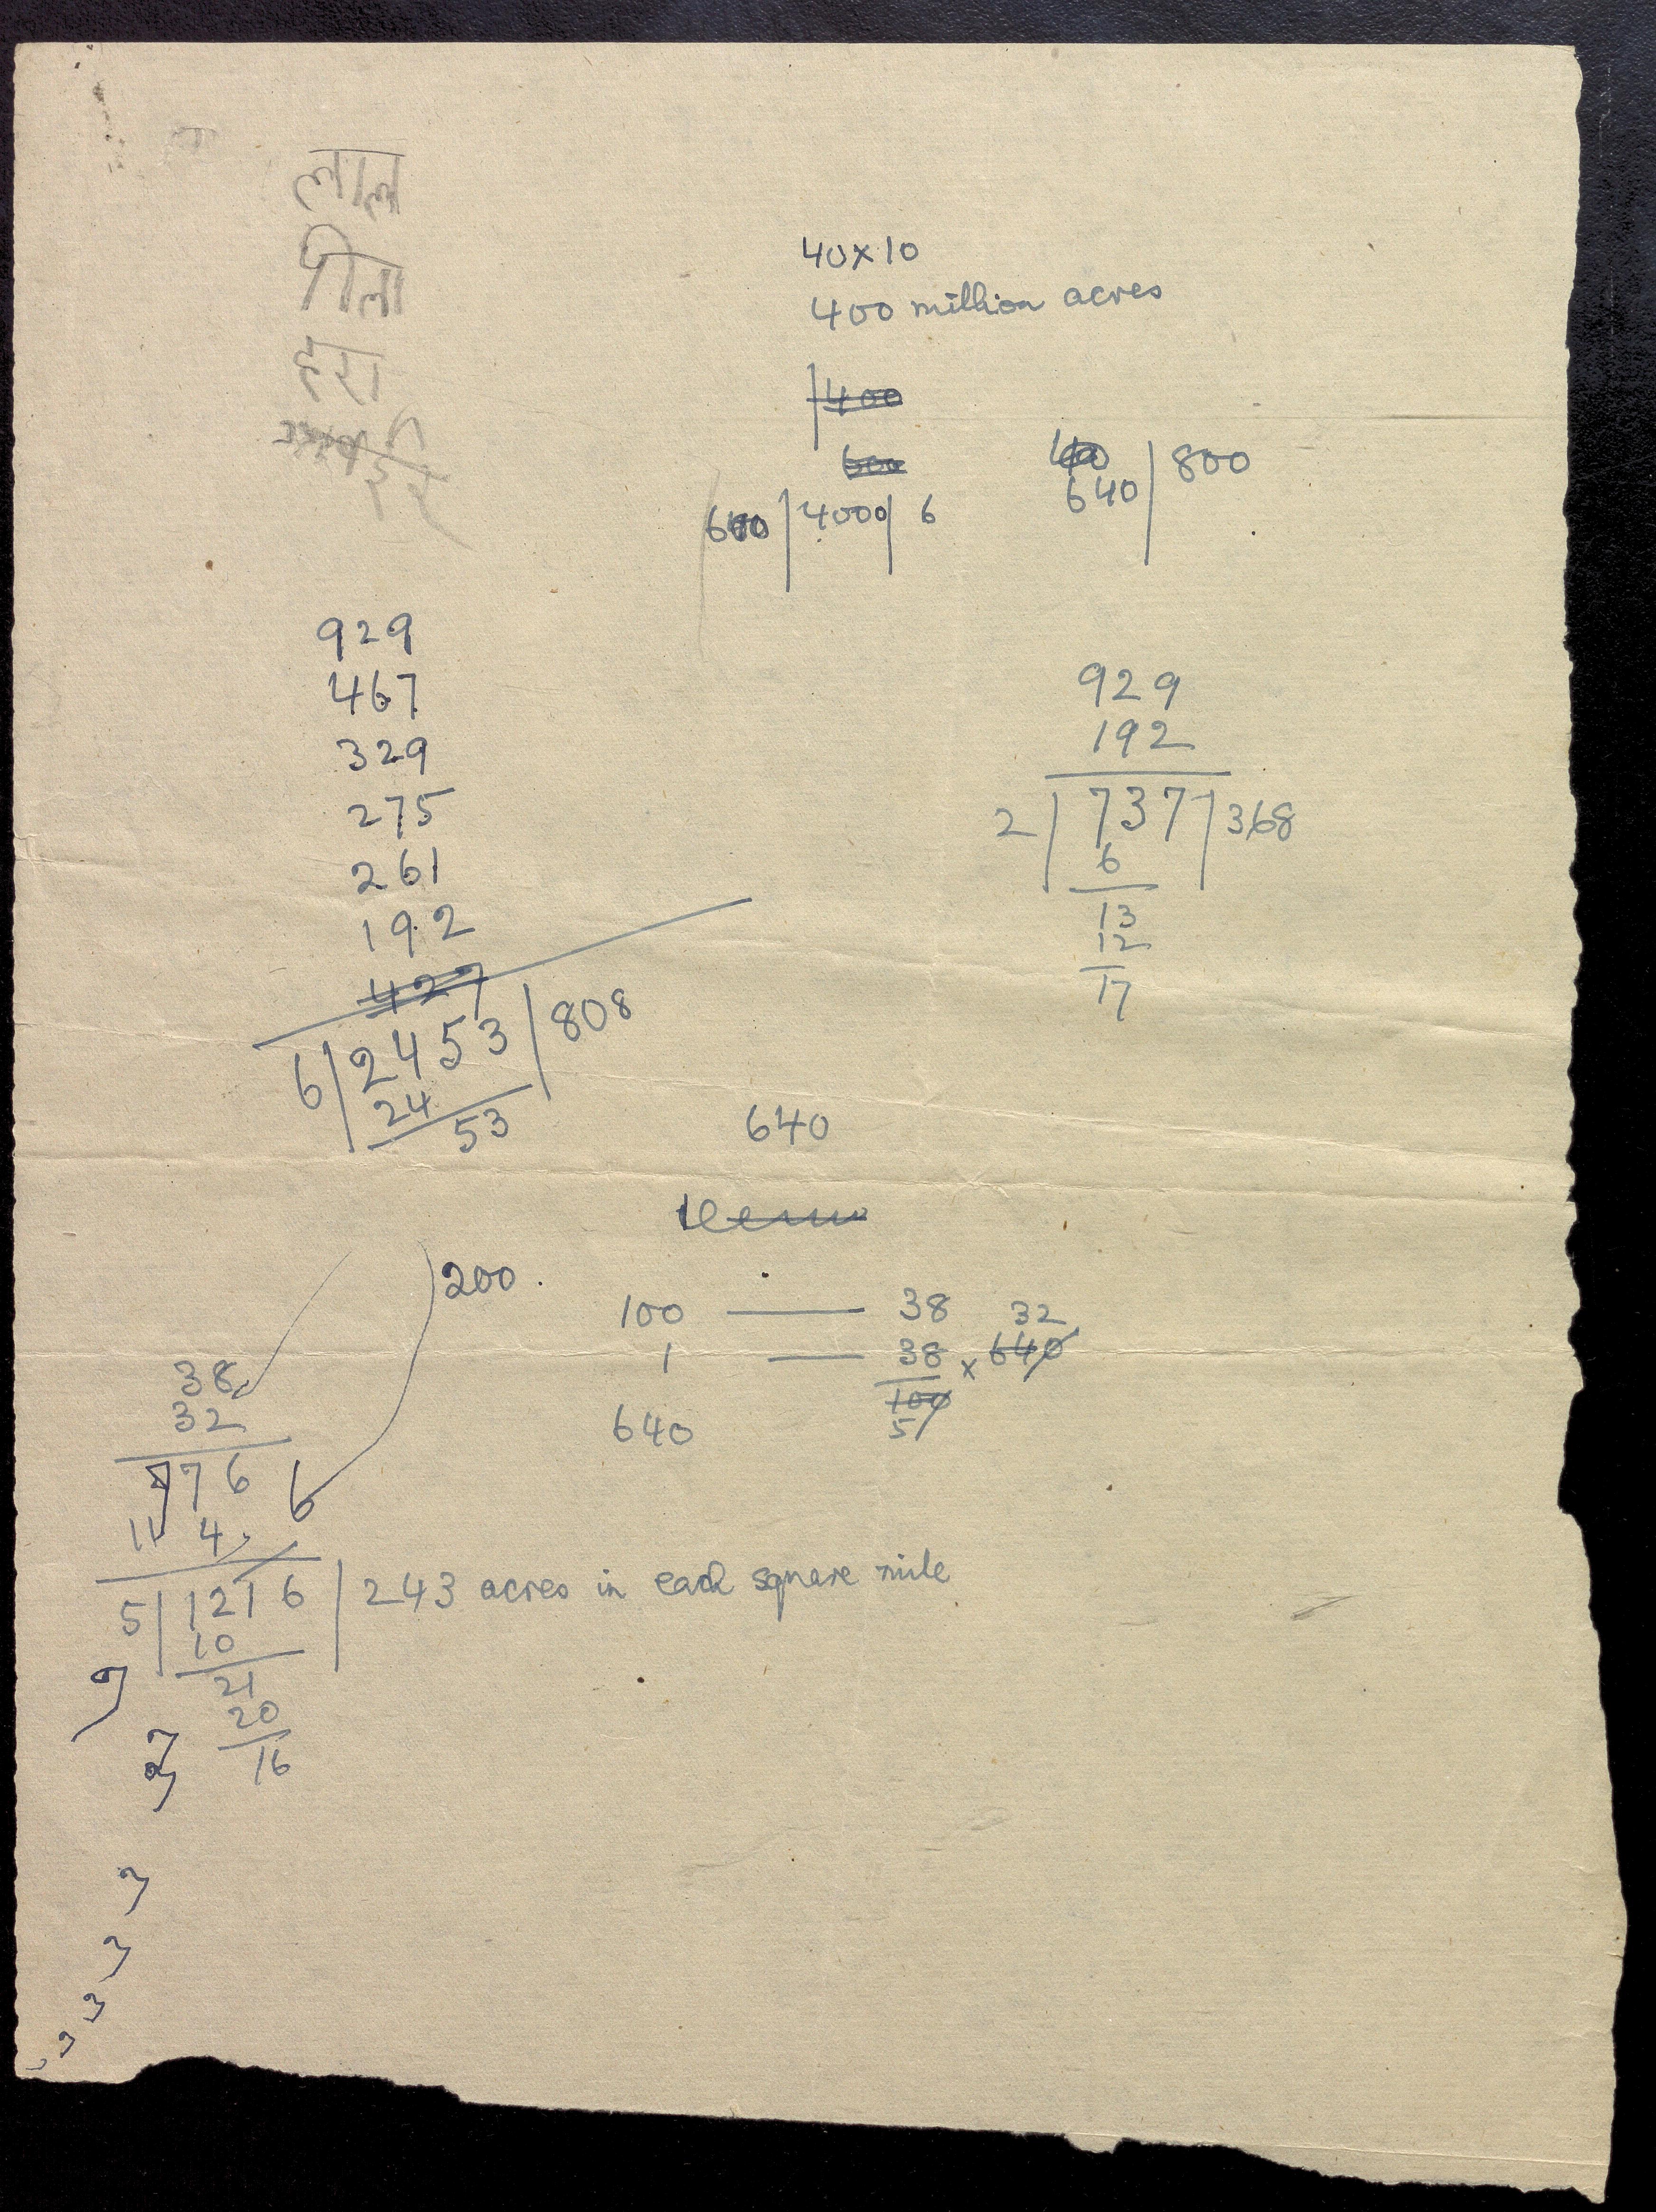 लाल
पीला
हरा
40 x 10
400 million acres
400
600
640 | 4000 | 6
640 | 800
929
467
329
275
261
192
427
6 | 2453 | 808
24
53
929
192
2 | 737 | 368
6
13
12
17
640
200.
100 — 38 32
1 — 38 x 640
100
640 5
38
32
76 6
11 4
5 | 1216 | 243 acres in each square mile
10
21
20
16